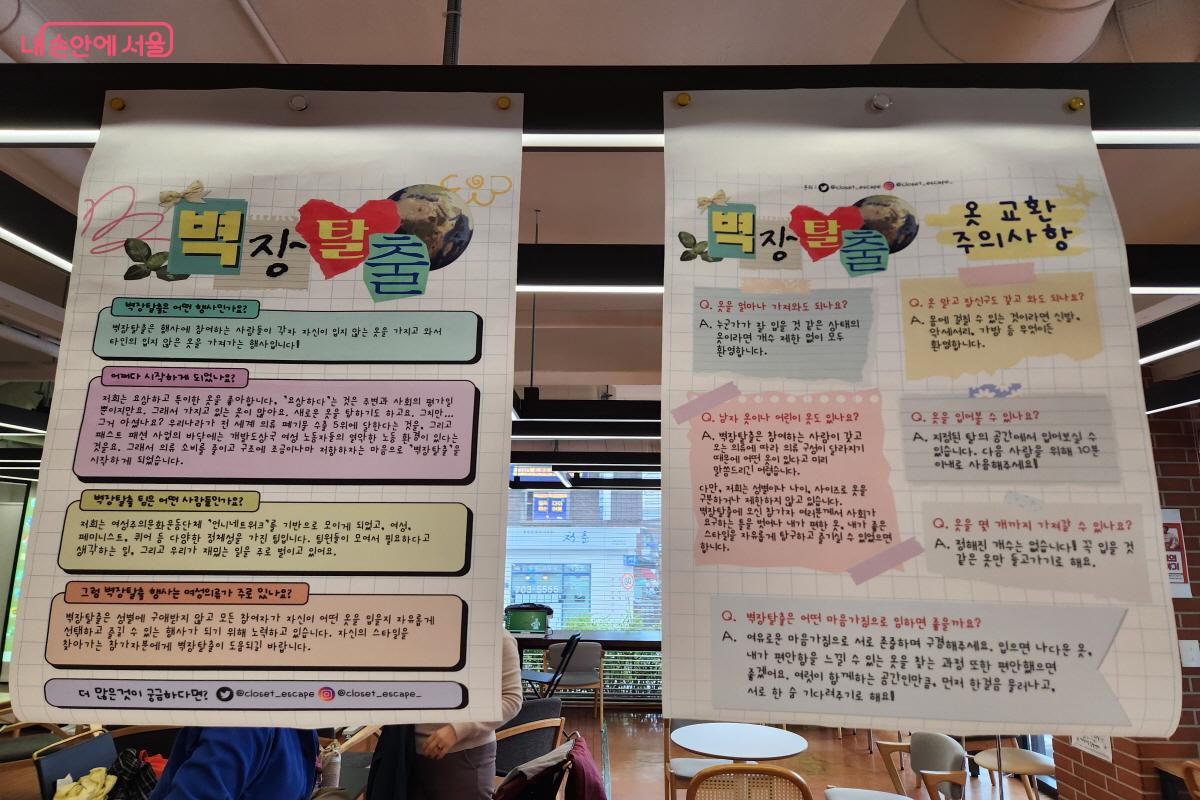 내 손안에 서울
벽장탈출
벽장탈출은 어떤 행사인가요?
벽장탈출은 행사에 참여하는 사람들이 각자 자신이 입지 않는 옷을 가지고 와서
타인의 입지 않은 옷을 가져가는 행사입니다!
어쩌다 시작하게 되었나요?
저희는 요상하고 특이한 옷을 좋아합니다. "요상하다"는 것은 주변과 사회의 평가일
뿐이지만요. 그래서 가지고 있는 옷이 많아요. 새로운 옷을 탐하기도 하고요. 그치만...
그거 아셨나요? 우리나라가 전 세계 의류 폐기물 수출 5위에 달한다는 것을. 그리고
패스트 패션 사업의 바닥에는 개발도상국 여성 노동자들의 열악한 노동 환경이 있다는
것을요. 그래서 의류 소비를 줄이고 구조에 조금이나마 저항하자는 마음으로 "벽장탈출"을
시작하게 되었습니다.
벽장탈출 팀은 어떤 사람들인가요?
저희는 여성주의문화운동단체 "언니네트워크"를 기반으로 모이게 되었고, 여성,
페미니스트, 퀴어 등 다양한 정체성을 가진 팀입니다. 팀원들이 모여서 필요하다고
생각하는 일, 그리고 우리가 재밌는 일을 주로 벌이고 있어요.
그럼 벽장탈출 행사는 여성의류가 주로 있나요?
벽장탈출은 성별에 구애받지 않고 모든 참여자가 자신이 어떤 옷을 입을지 자유롭게
선택하고 즐길 수 있는 행사가 되기 위해 노력하고 있습니다. 자신의 스타일을
찾아가는 참가자분에게 벽장탈출이 도움되길 바랍니다.
더 많은것이 궁금하다면? @closet_escape @closet_escape_
문의 : @closet_escape @closet_escape_
벽장탈출
옷 교환
주의사항
Q. 옷을 얼마나 가져와도 되나요?
A. 누군가가 잘 입을 것 같은 상태의
옷이라면 개수 제한 없이 모두
환영합니다.
Q. 옷 말고 장신구도 갖고 와도 되나요?
A. 몸에 걸칠 수 있는 것이라면 신발,
악세서리, 가방 등 무엇이든
환영합니다.
Q. 남자 옷이나 어린이 옷도 있나요?
A. 벽장탈출은 참여하는 사람이 갖고
오는 의류에 따라 의류 구성이 달라지기
때문에 어떤 옷이 있다고 미리
말씀드리긴 어렵습니다.
다만, 저희는 성별이나 나이, 사이즈로 옷을
구분하거나 제한하지 않고 있습니다.
벽장탈출에 오신 참가자 여러분께서 사회가
요구하는 틀을 벗어나 내가 편한 옷, 내가 좋은
스타일을 자유롭게 탐구하고 즐기실 수 있었으면
합니다.
Q. 옷을 입어볼 수 있나요?
A. 지정된 탈의 공간에서 입어보실 수
있습니다. 다음 사람을 위해 10분
이내로 사용해주세요!
Q. 옷을 몇 개까지 가져갈 수 있나요?
A. 정해진 개수는 없습니다! 꼭 입을 것
같은 옷만 들고가기로 해요.
Q. 벽장탈출은 어떤 마음가짐으로 임하면 좋을까요?
A. 여유로운 마음가짐으로 서로 존중하며 구경해주세요. 입으면 나다운 옷,
내가 편안함을 느낄 수 있는 옷을 찾는 과정 또한 편안했으면
좋겠어요. 여럿이 함께하는 공간인만큼, 먼저 한걸음 물러나고,
서로 한 숨 기다려주기로 해요!
703-5555